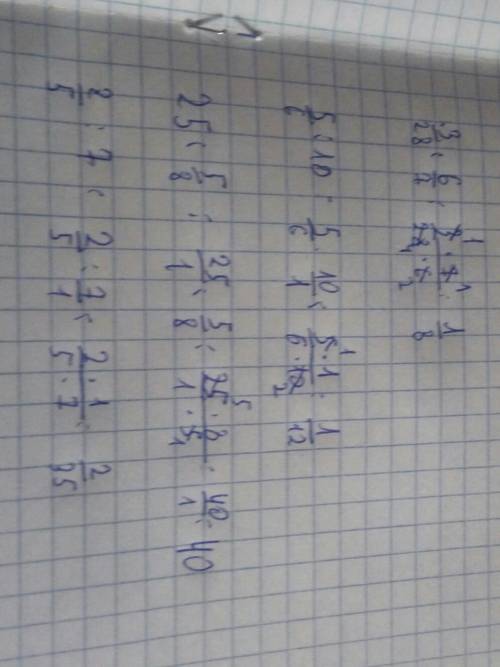 3/28 : 6/7 = 3 · 7 / 28 · 6 = 1/8
5/6 : 10 = 5/6 : 10/1 = 5 · 1 / 6 · 10 = 1/12
25 : 5/8 = 25/1 : 5/8 = 25 · 8 / 1 · 5 = 40/1 = 40
2/5 : 7 = 2/5 : 7/1 = 2 · 1 / 5 · 7 = 2/35